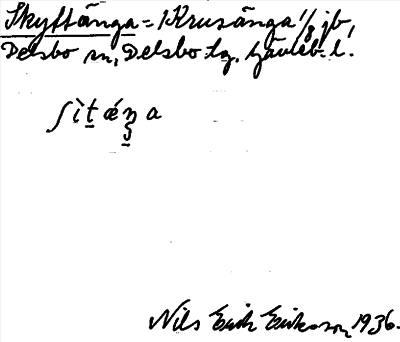 Skyttänga = 1 Krusänga 1/8 jb,
Delsbo sn, Delsbo tg. Gävleb. l.
ʃìt̠ǽn̠a
Nils Erik Eriksson 1936.